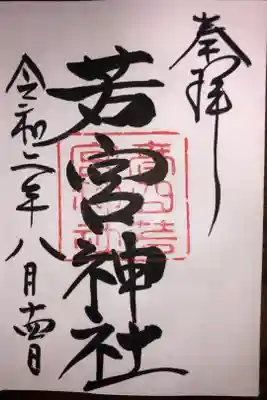 奉拝
若宮神社
令和二年八月十四日